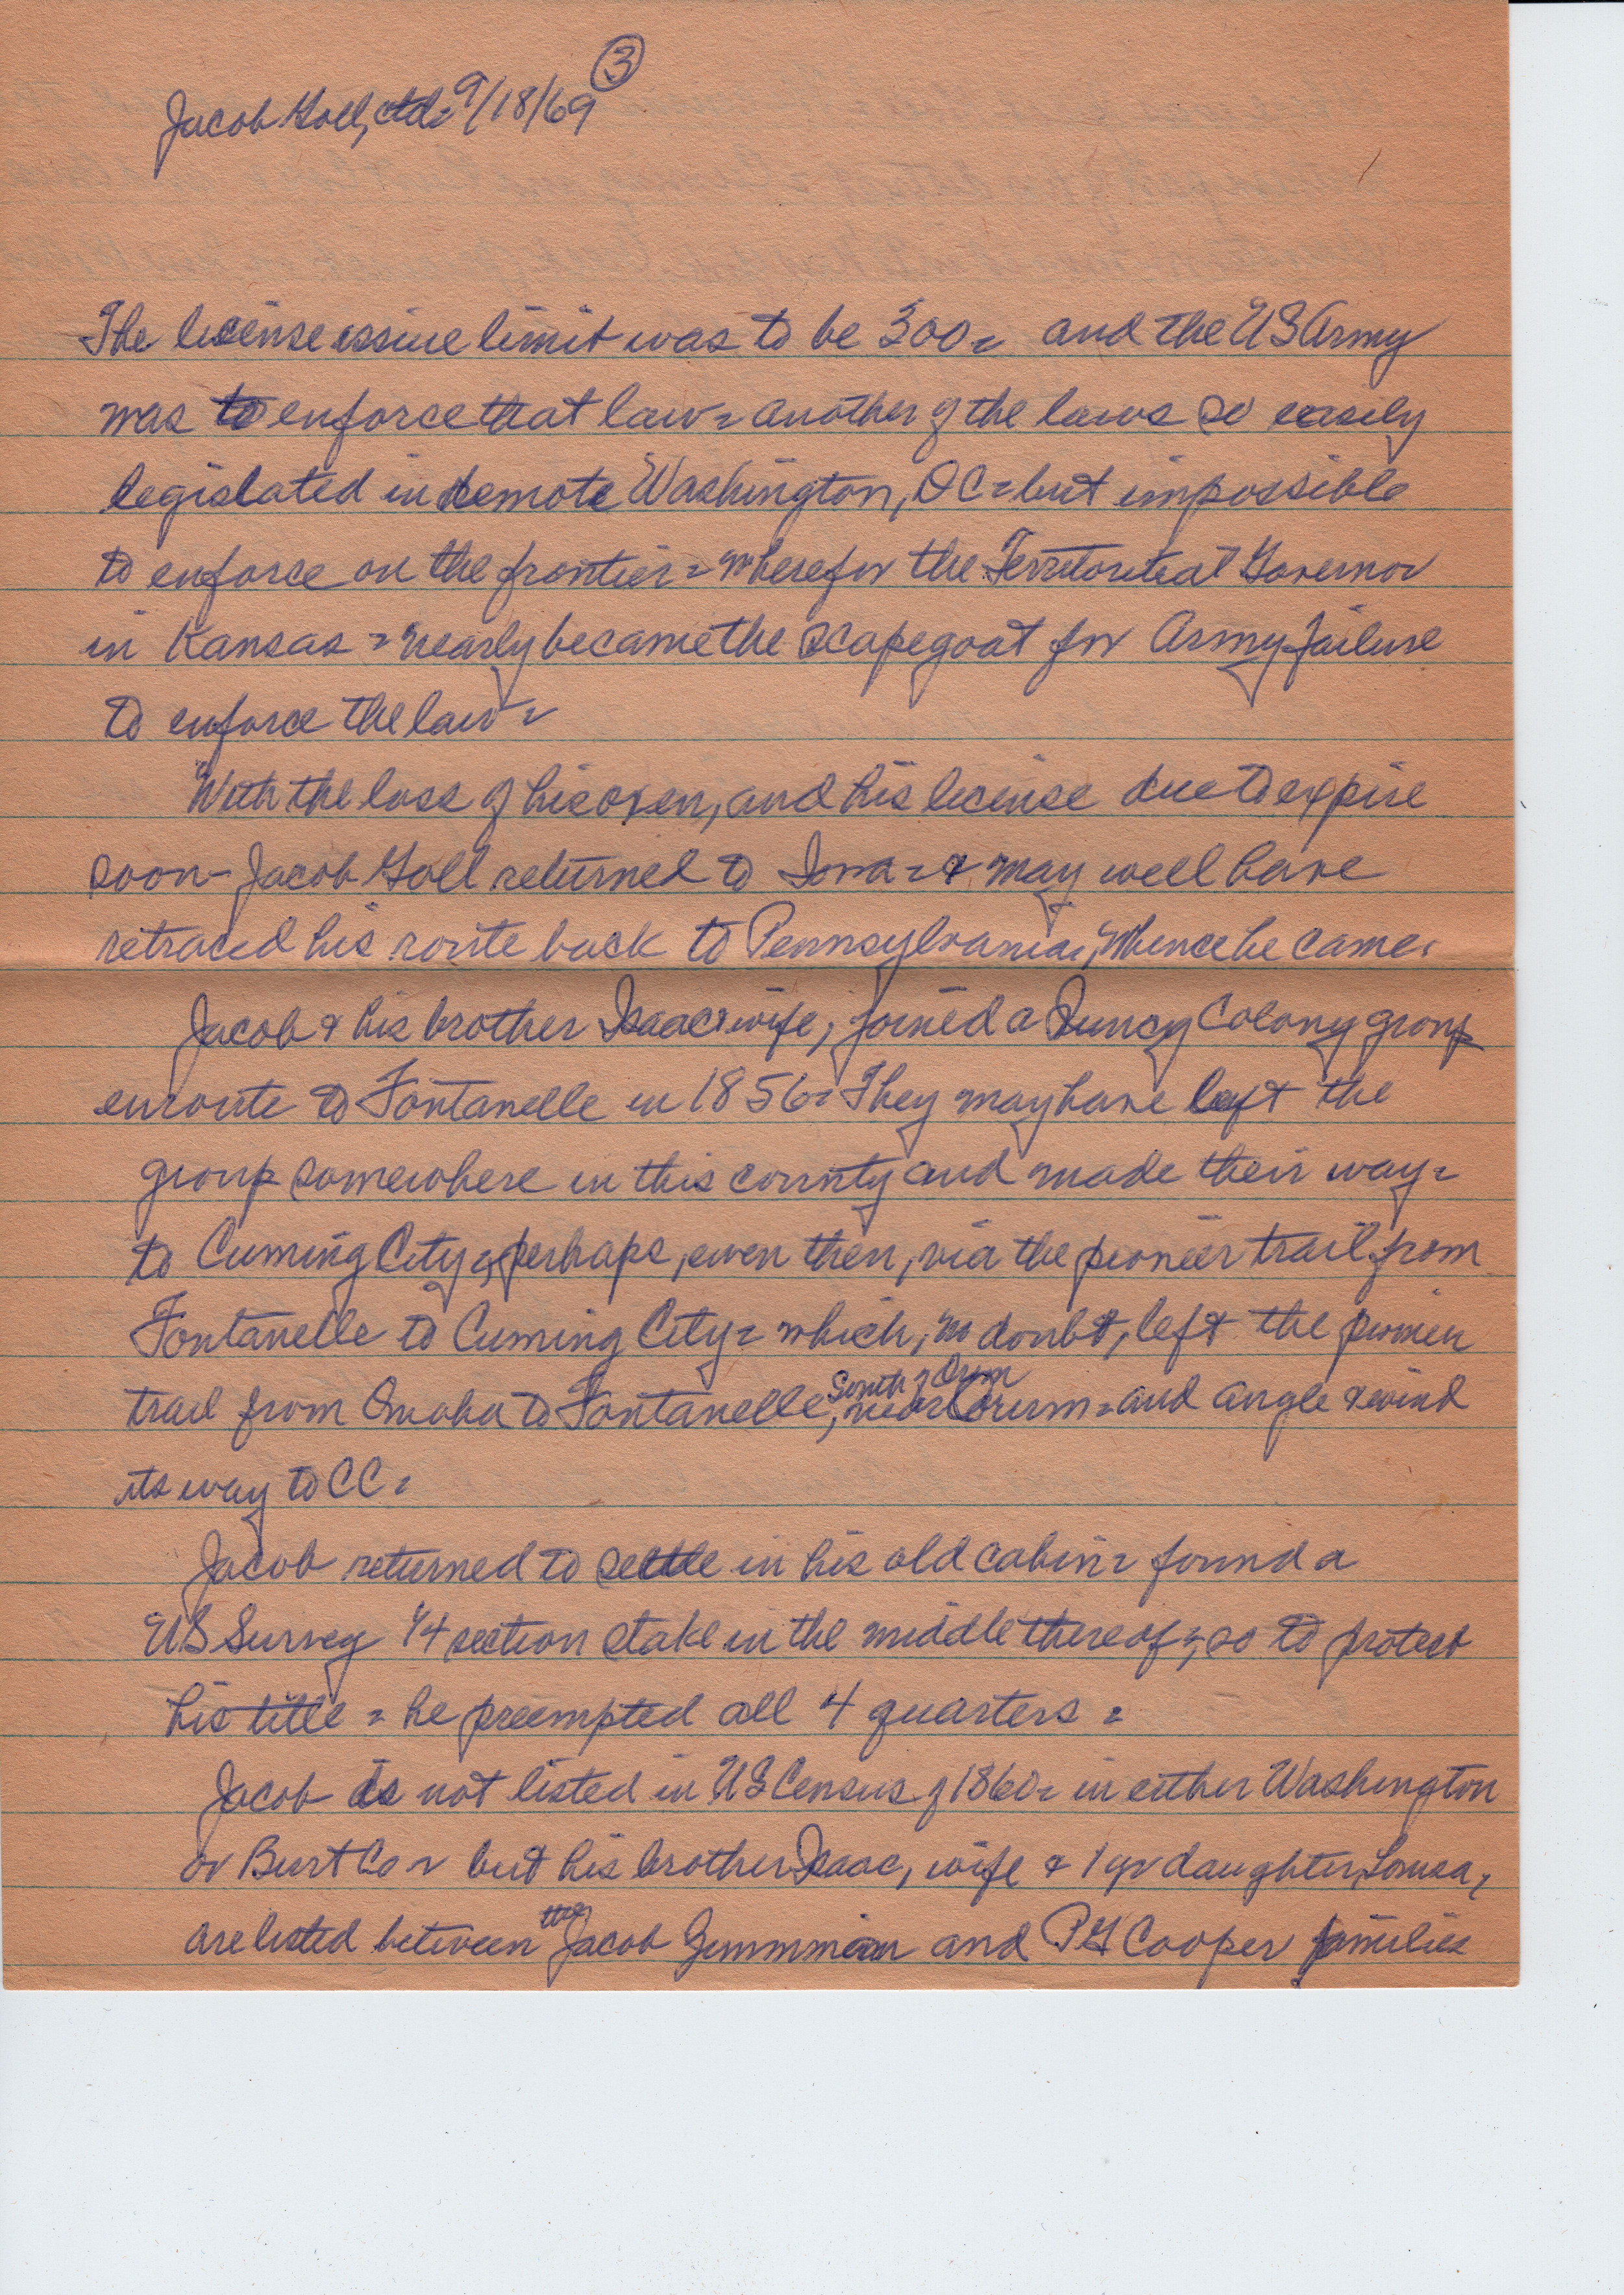 ③
Jacob Goll, ctd= 9/18/69
The license issue limit was to be 300= and the US Army
was to enforce that law= another of the laws so easily
legislated in remote Washington, DC= but impossible
to enforce on the frontier= wherefor the Territorital Governor
in Kansas = nearly became the scapegoat for Army failure
to enforce the law=
With the loss of his oxen, and his license due to expire
soon- Jacob Goll returned to Iowa= & may well have
retraced his route back to Pennsylvania, whence he came.
Jacob & his brother Isaac & wife, joined a Quincy Colony group
enroute to Fontanelle in 1856= They may have left the
group somewhere in this county and made their way=
to Cuming City, perhaps, even then, via the pioneer trail from
Fontanelle to Cuming City= which, no doubt, left the pioneer
South of Orum
trail from Omaha to Fontanelle, near Orum= and angle & wind
its way to CC=
Jacob returned to settle in his old cabin= found a
US Survey 1/4 section stake in the middle thereof; so to protect
his title = he preempted all 4 quarters =
Jacob is not listed in US Census of 1860= in either Washington
or Burt Co= but his brother Isaac, wife & 1 yr daughter, Louisa,
the
are listed between Jacob and PG Cooper families